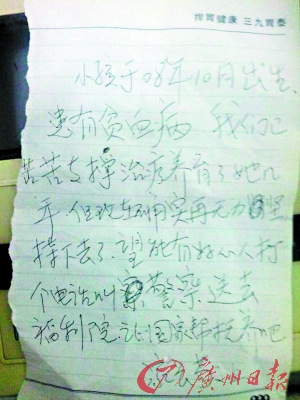 捍胃健康 三九胃泰
小孩于08年10月出生、
患有贫血病 我们已
苦苦支撑治疗养育了她几
年.但现在确实再无力坚
撑下去了.望能有好心人打
个电话叫警察送去
福利院.让国家帮抚养吧
广州日报